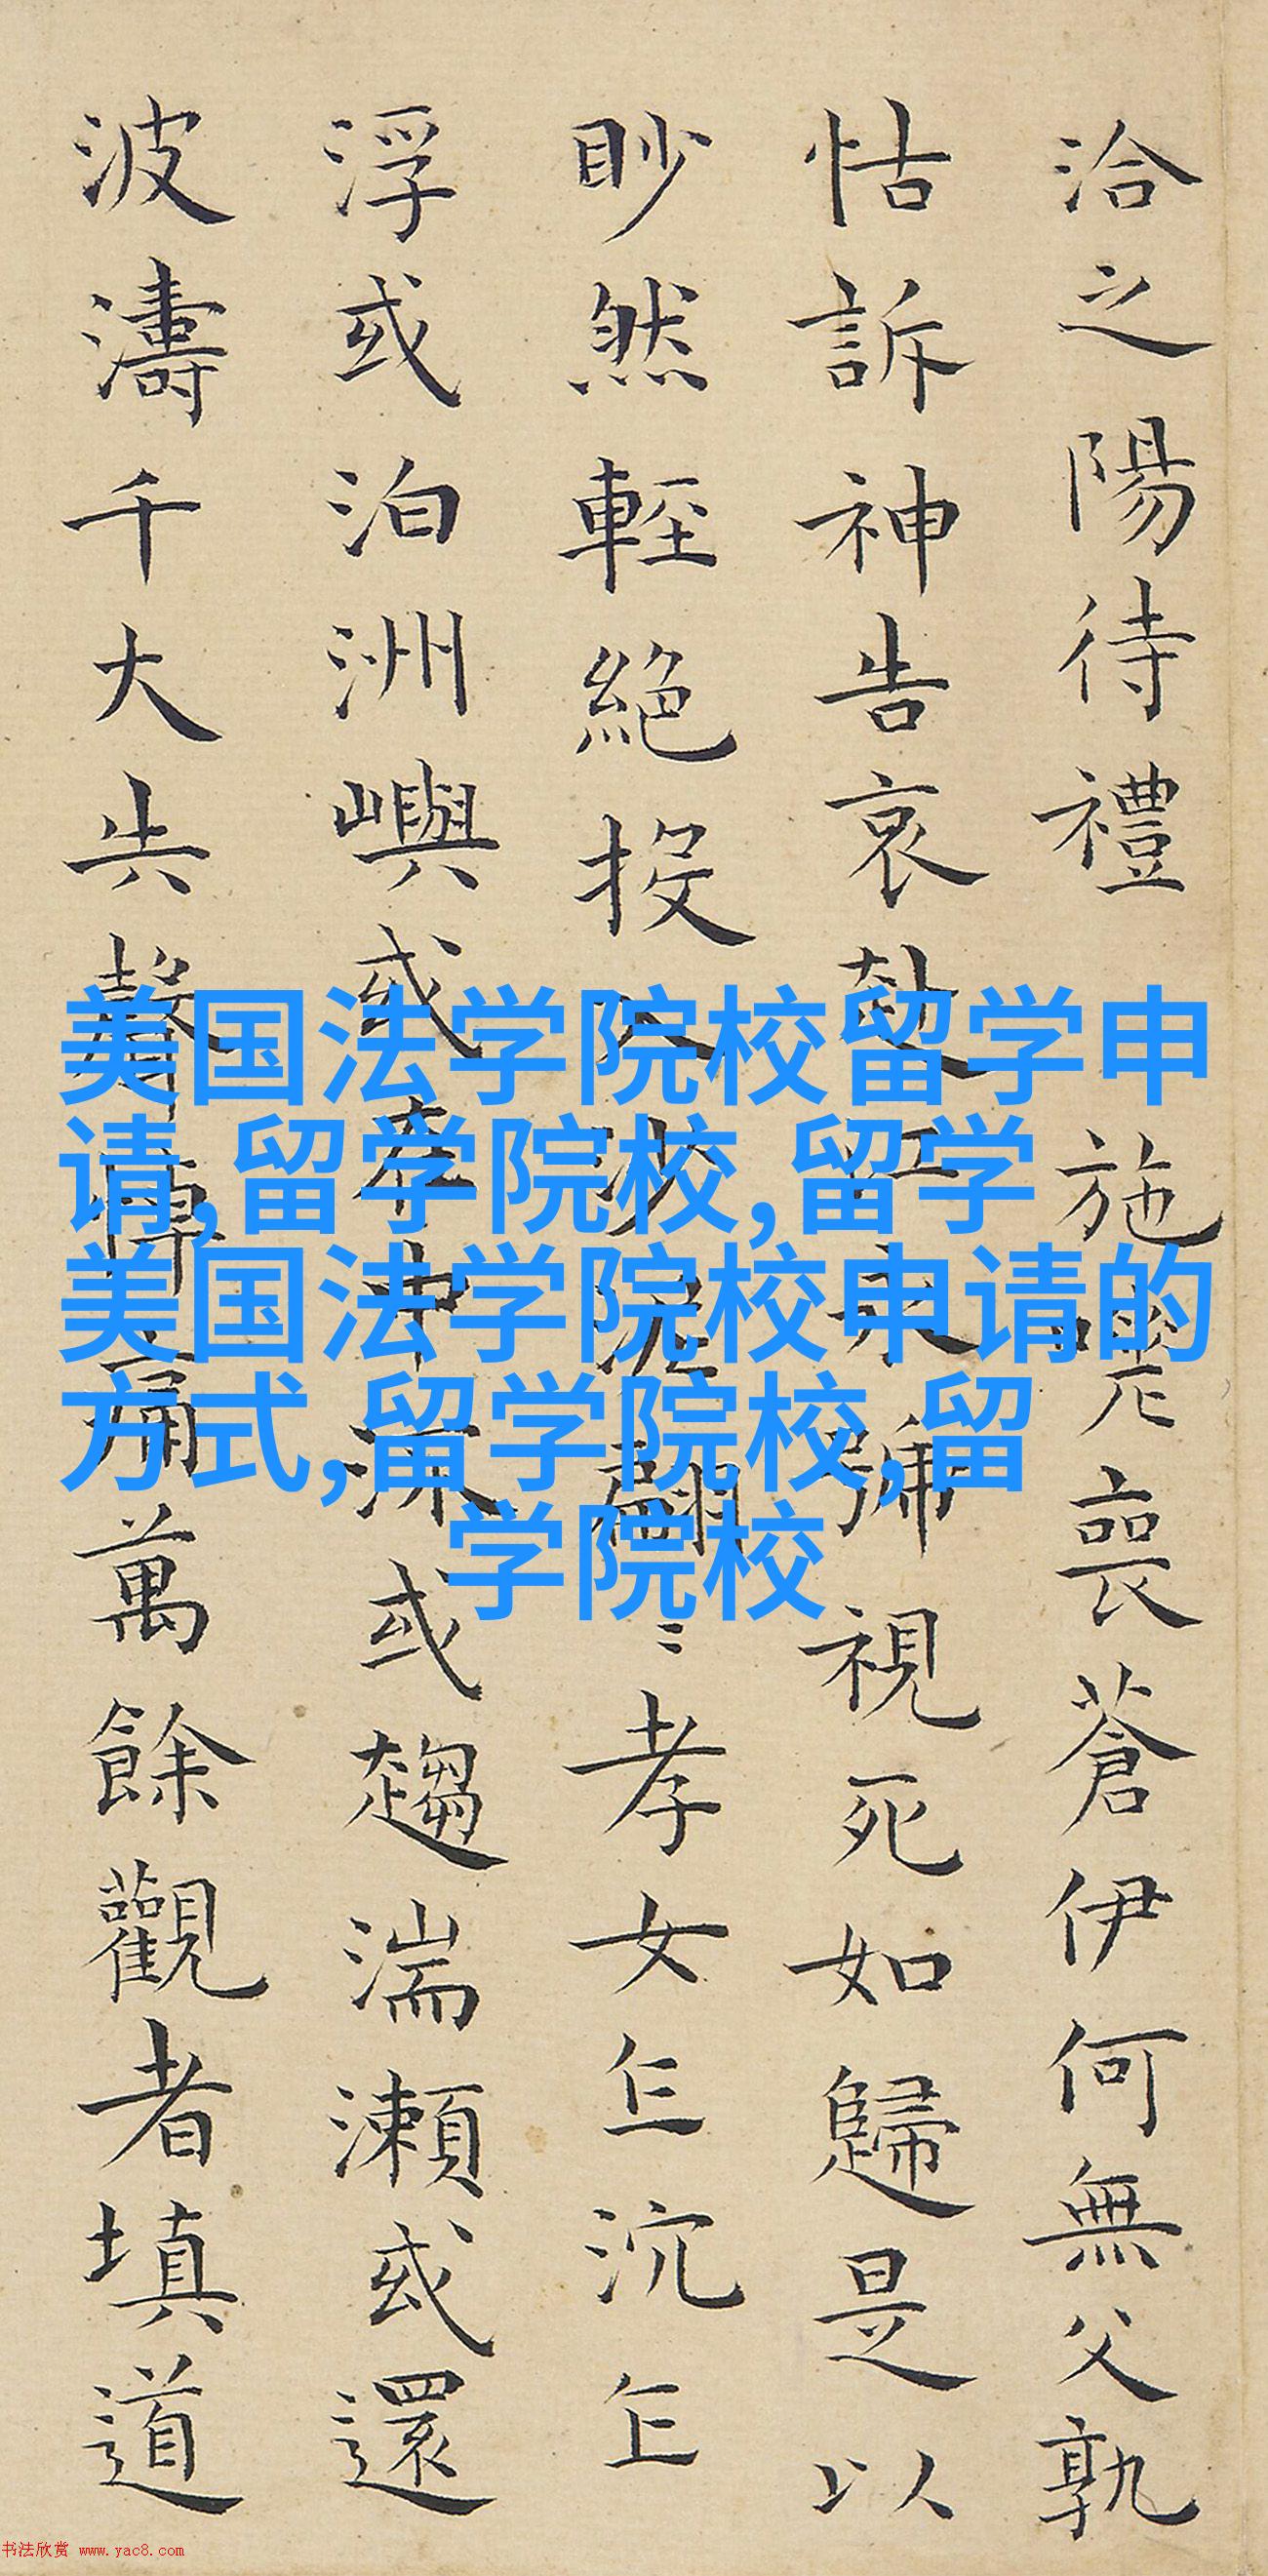 洽之陽待禮施喪蒼伊何無父孰
怙訴神告哀赴江永號視死如歸是以
眇然輕絕投入沙泥翩〻孝女乍沉乍
浮或泊洲嶼或在中流或趨湍瀨或還
波濤千大失聲悼痛萬餘觀者填道
美国法学院校留学申
请,留学院校,留学
美国法学院校申请的
方式,留学院校,留
学院校
书法欣赏 www.yac8.com